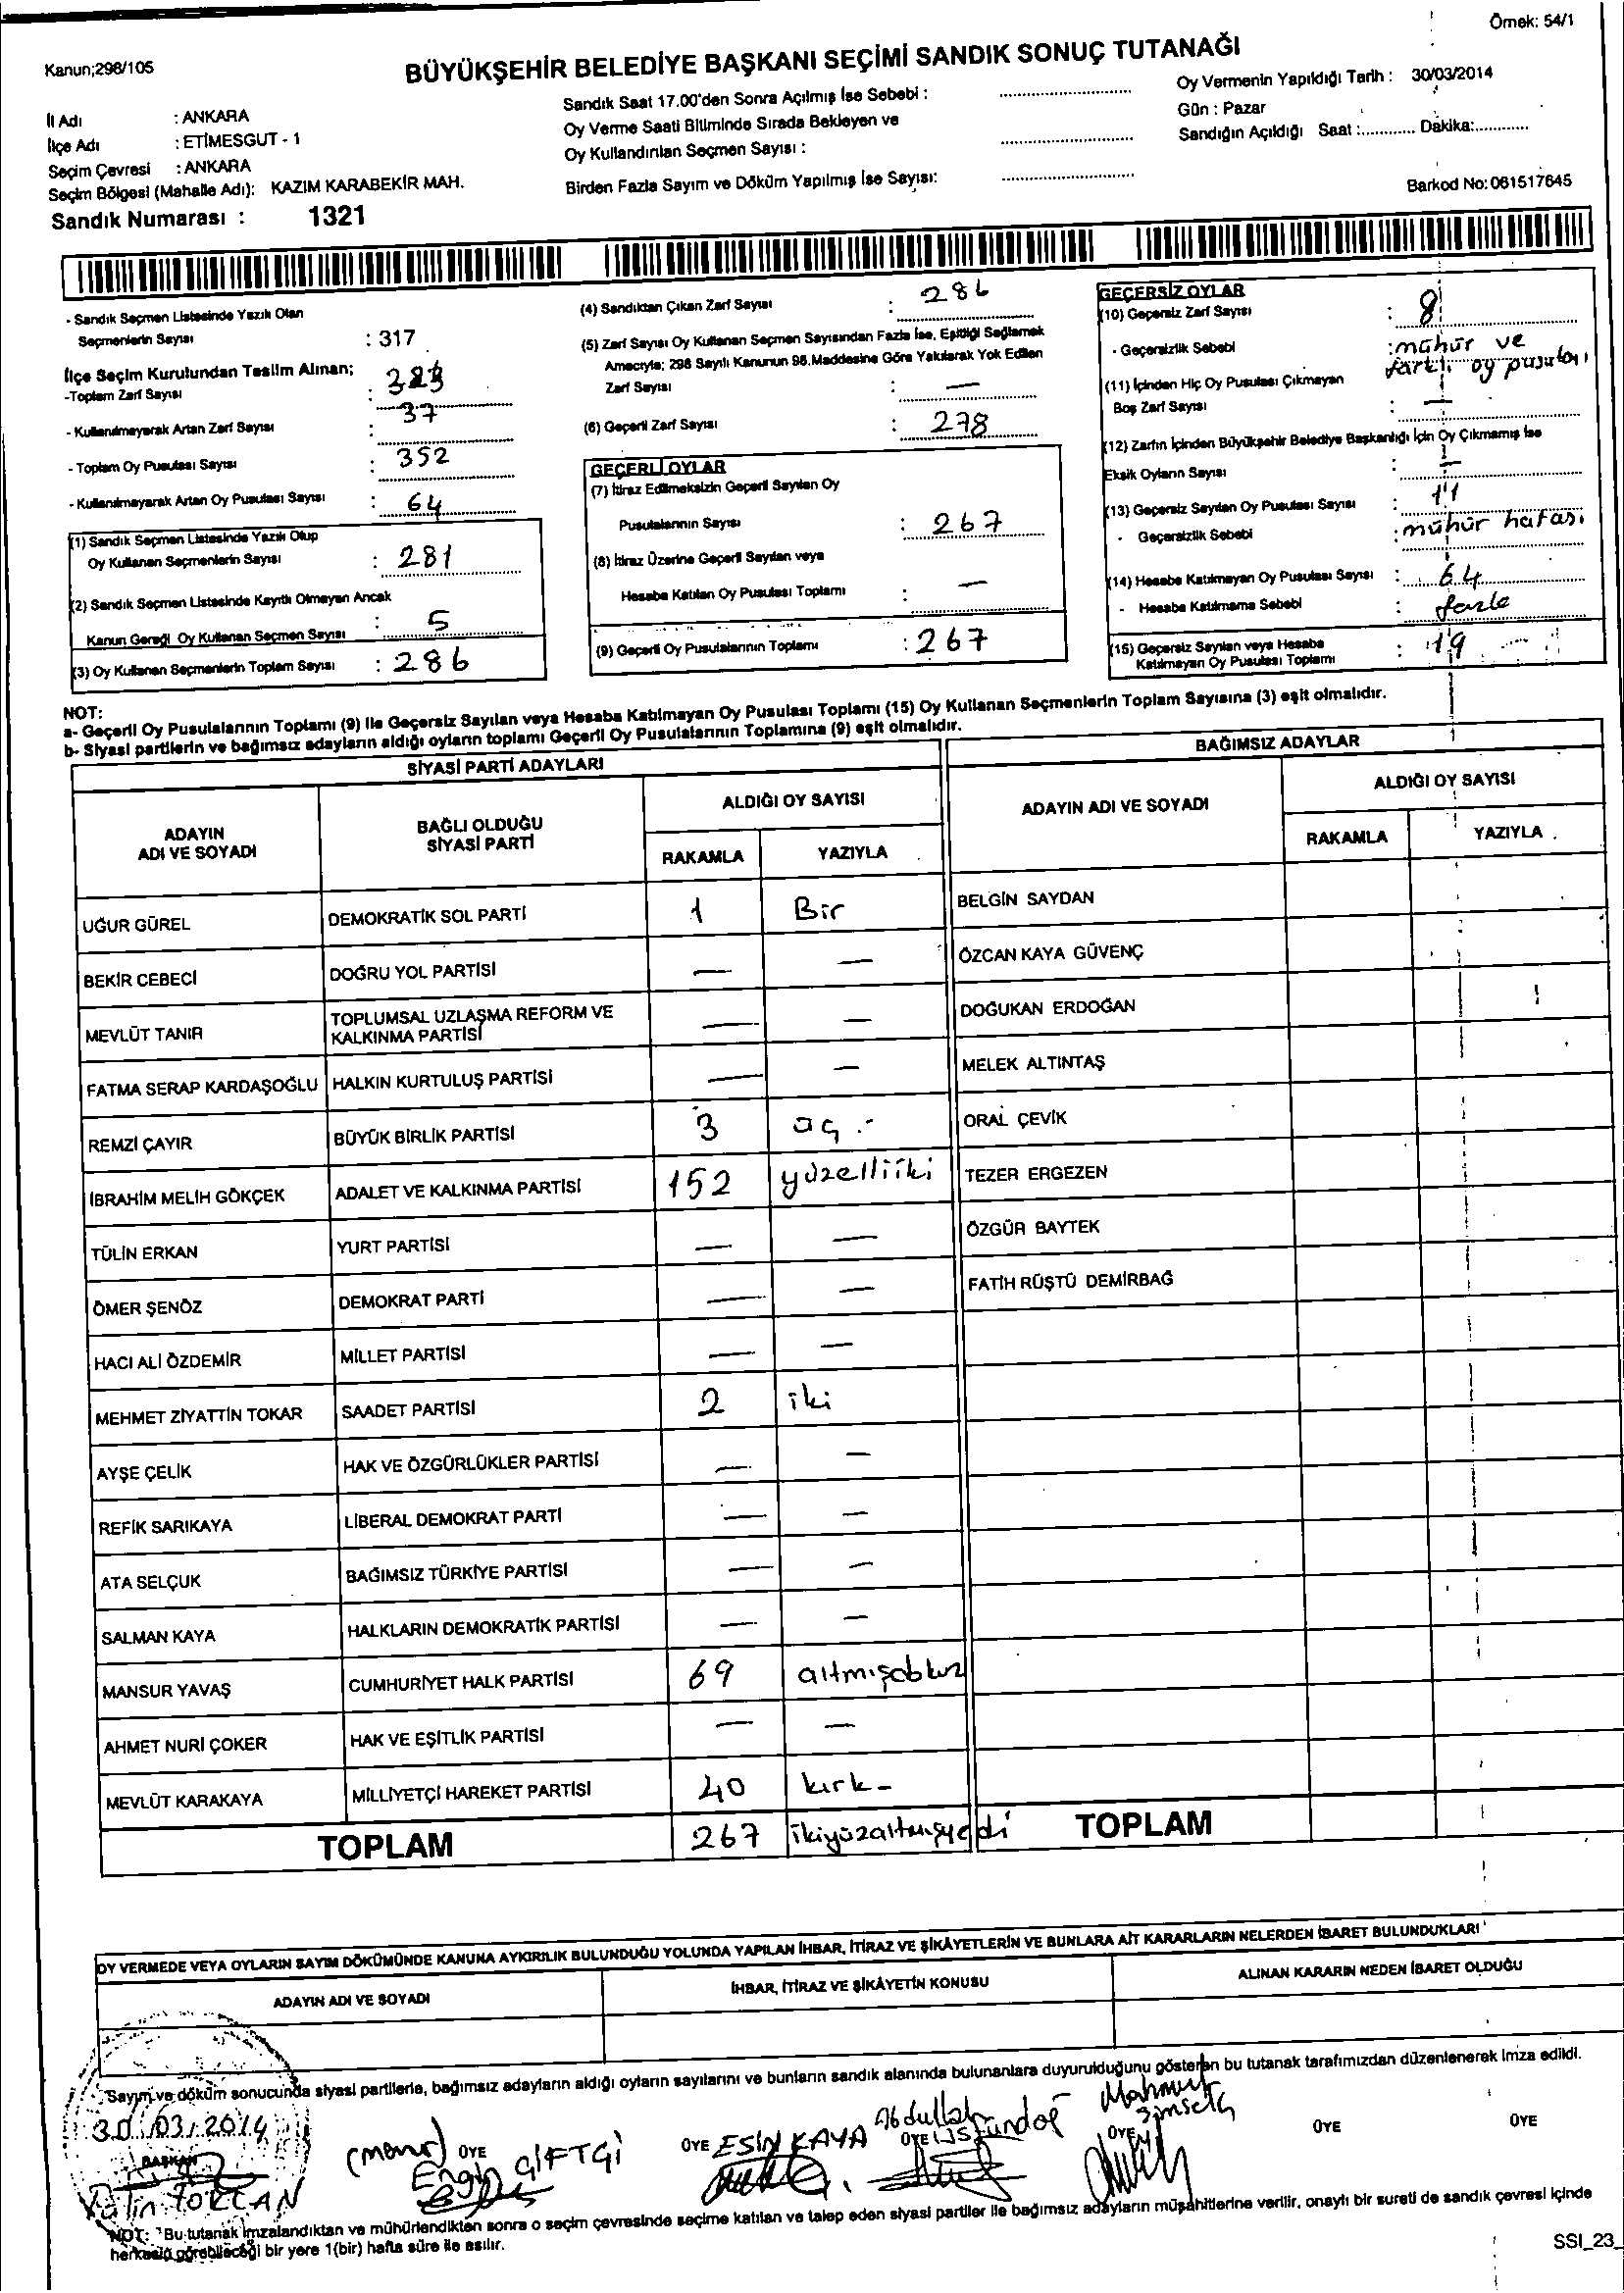 Örnek: 54/1
Kanun;298/105
BÜYÜKŞEHİR BELEDİYE BAŞKANI SEÇİMİ SANDIK SONUÇ TUTANAĞI
İl Adı : ANKARA
İlçe Adı : ETİMESGUT - 1
Seçim Çevresi : ANKARA
Seçim Bölgesi (Mahalle Adı): KAZIM KARABEKİR MAH.
Sandık Numarası : 1321
Sandık Saat 17.00'den Sonra Açılmış İse Sebebi :
Oy Verme Saati Bitiminde Sırada Bekleyen ve
Oy Kullandırılan Seçmen Sayısı :
Birden Fazla Sayım ve Döküm Yapılmış İse Sayısı:
Oy Vermenin Yapıldığı Tarih : 30/03/2014
Gün : Pazar
Sandığın Açıldığı Saat :............ Dakika:............
Barkod No: 061517645
- Sandık Seçmen Listesinde Yazılı Olan
Seçmenlerin Sayısı : 317
İlçe Seçim Kurulundan Teslim Alınan;
-Toplam Zarf Sayısı :
- Kullanılmayarak Artan Zarf Sayısı : 37
- Toplam Oy Pusulası Sayısı : 352
- Kullanılmayarak Artan Oy Pusulası Sayısı : 64
(1) Sandık Seçmen Listesinde Yazılı Olup
Oy Kullanan Seçmenlerin Sayısı : 281
(2) Sandık Seçmen Listesinde Kayıtlı Olmayan Ancak
Kanun Gereği Oy Kullanan Seçmen Sayısı : 5
(3) Oy Kullanan Seçmenlerin Toplam Sayısı : 286
(4) Sandıktan Çıkan Zarf Sayısı : 286
(5) Zarf Sayısı Oy Kullanan Seçmen Sayısından Fazla İse, Eşitliği Sağlamak
Amacıyla; 298 Sayılı Kanunun 98.Maddesine Göre Yakılarak Yok Edilen
Zarf Sayısı : —
(6) Geçerli Zarf Sayısı : 278
GEÇERLİ OYLAR
(7) İtiraz Edilmeksizin Geçerli Sayılan Oy
Pusulalarının Sayısı : 267
(8) İtiraz Üzerine Geçerli Sayılan veya
Hesaba Katılan Oy Pusulası Toplamı : —
(9) Geçerli Oy Pusulalarının Toplamı : 267
GEÇERSİZ OYLAR
(10) Geçersiz Zarf Sayısı : 8
- Geçersizlik Sebebi : mühür ve
farklı oy pusulası
(11) İçinden Hiç Oy Pusulası Çıkmayan
Boş Zarf Sayısı : —
(12) Zarfın İçinden Büyükşehir Belediye Başkanlığı İçin Oy Çıkmamış İse
Eksik Oyların Sayısı : —
(13) Geçersiz Sayılan Oy Pusulası Sayısı : 11
- Geçersizlik Sebebi : mühür hatası
(14) Hesaba Katılmayan Oy Pusulası Sayısı : 64
- Hesaba Katılmama Sebebi : fazla
(15) Geçersiz Sayılan veya Hesaba
Katılmayan Oy Pusulası Toplamı : 19
NOT:
a- Geçerli Oy Pusulalarının Toplamı (9) ile Geçersiz Sayılan veya Hesaba Katılmayan Oy Pusulası Toplamı (15) Oy Kullanan Seçmenlerin Toplam Sayısına (3) eşit olmalıdır.
b- Siyasi partilerin ve bağımsız adayların aldığı oyların toplamı Geçerli Oy Pusulalarının Toplamına (9) eşit olmalıdır.
SİYASİ PARTİ ADAYLARI
ADAYIN
ADI VE SOYADI
BAĞLI OLDUĞU
SİYASİ PARTİ
ALDIĞI OY SAYISI
RAKAMLA YAZIYLA
UĞUR GÜREL DEMOKRATİK SOL PARTİ 1 Bir
BEKİR CEBECİ DOĞRU YOL PARTİSİ — —
MEVLÜT TANIR TOPLUMSAL UZLAŞMA REFORM VE
KALKINMA PARTİSİ — —
FATMA SERAP KARDAŞOĞLU HALKIN KURTULUŞ PARTİSİ — —
REMZİ ÇAYIR BÜYÜK BİRLİK PARTİSİ 3 üç
İBRAHİM MELİH GÖKÇEK ADALET VE KALKINMA PARTİSİ 152 yüzelliiki
TÜLİN ERKAN YURT PARTİSİ — —
ÖMER ŞENÖZ DEMOKRAT PARTİ — —
HACI ALİ ÖZDEMİR MİLLET PARTİSİ — —
MEHMET ZİYATTİN TOKAR SAADET PARTİSİ 2 iki
AYŞE ÇELİK HAK VE ÖZGÜRLÜKLER PARTİSİ — —
REFİK SARIKAYA LİBERAL DEMOKRAT PARTİ — —
ATA SELÇUK BAĞIMSIZ TÜRKİYE PARTİSİ — —
SALMAN KAYA HALKLARIN DEMOKRATİK PARTİSİ — —
MANSUR YAVAŞ CUMHURİYET HALK PARTİSİ 69 altmışdokuz
AHMET NURİ ÇOKER HAK VE EŞİTLİK PARTİSİ — —
MEVLÜT KARAKAYA MİLLİYETÇİ HAREKET PARTİSİ 40 kırk-
TOPLAM 267 ikiyüzaltmışyedi
BAĞIMSIZ ADAYLAR
ADAYIN ADI VE SOYADI
ALDIĞI OY SAYISI
RAKAMLA YAZIYLA
BELGİN SAYDAN
ÖZCAN KAYA GÜVENÇ
DOĞUKAN ERDOĞAN
MELEK ALTINTAŞ
ORAL ÇEVİK
TEZER ERGEZEN
ÖZGÜR BAYTEK
FATİH RÜŞTÜ DEMİRBAĞ
TOPLAM
OY VERMEDE VEYA OYLARIN SAYIM DÖKÜMÜNDE KANUNA AYKIRILIK BULUNDUĞU YOLUNDA YAPILAN İHBAR, İTİRAZ VE ŞİKÂYETLERİN VE BUNLARA AİT KARARLARIN NELERDEN İBARET BULUNDUKLARI
ADAYIN ADI VE SOYADI
İHBAR, İTİRAZ VE ŞİKÂYETİN KONUSU
ALINAN KARARIN NEDEN İBARET OLDUĞU
Sayım ve döküm sonucunda siyasi partilerle, bağımsız adayların aldığı oyların sayılarını ve bunların sandık alanında bulunanlara duyurulduğunu gösteren bu tutanak tarafımızdan düzenlenerek imza edildi.
30/03/2014
BAŞKAN
ÜYE
Engin ÇİFTÇİ
ÜYE ESİN KAYA
Abdullah
ÜYE
Mahmut
Şimşek
ÜYE
ÜYE
ÜYE
NOT: Bu tutanak imzalandıktan ve mühürlendikten sonra o seçim çevresinde seçime katılan ve talep eden siyasi partiler ile bağımsız adayların müşahitlerine verilir, onaylı bir sureti de sandık çevresi içinde
herkesin görebileceği bir yere 1(bir) hafta süre ile asılır.
SSI_23_